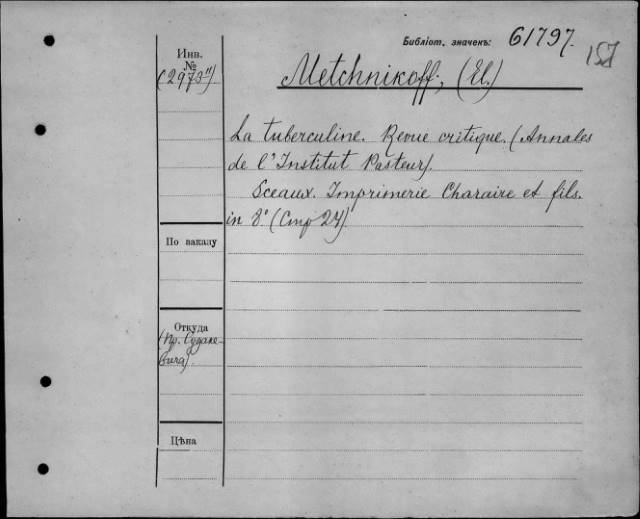 Библіот. значекъ: 61797.
157
Инв.
№
(2973")
Metchnikoff, (El.)
La tuberculine. Revue critique. (Annales
de l'Institut Pasteur).
Sceaux. Imprimerie Charaire et fils.
in 8º (Стр 24)
По заказу
Откуда
Цѣна